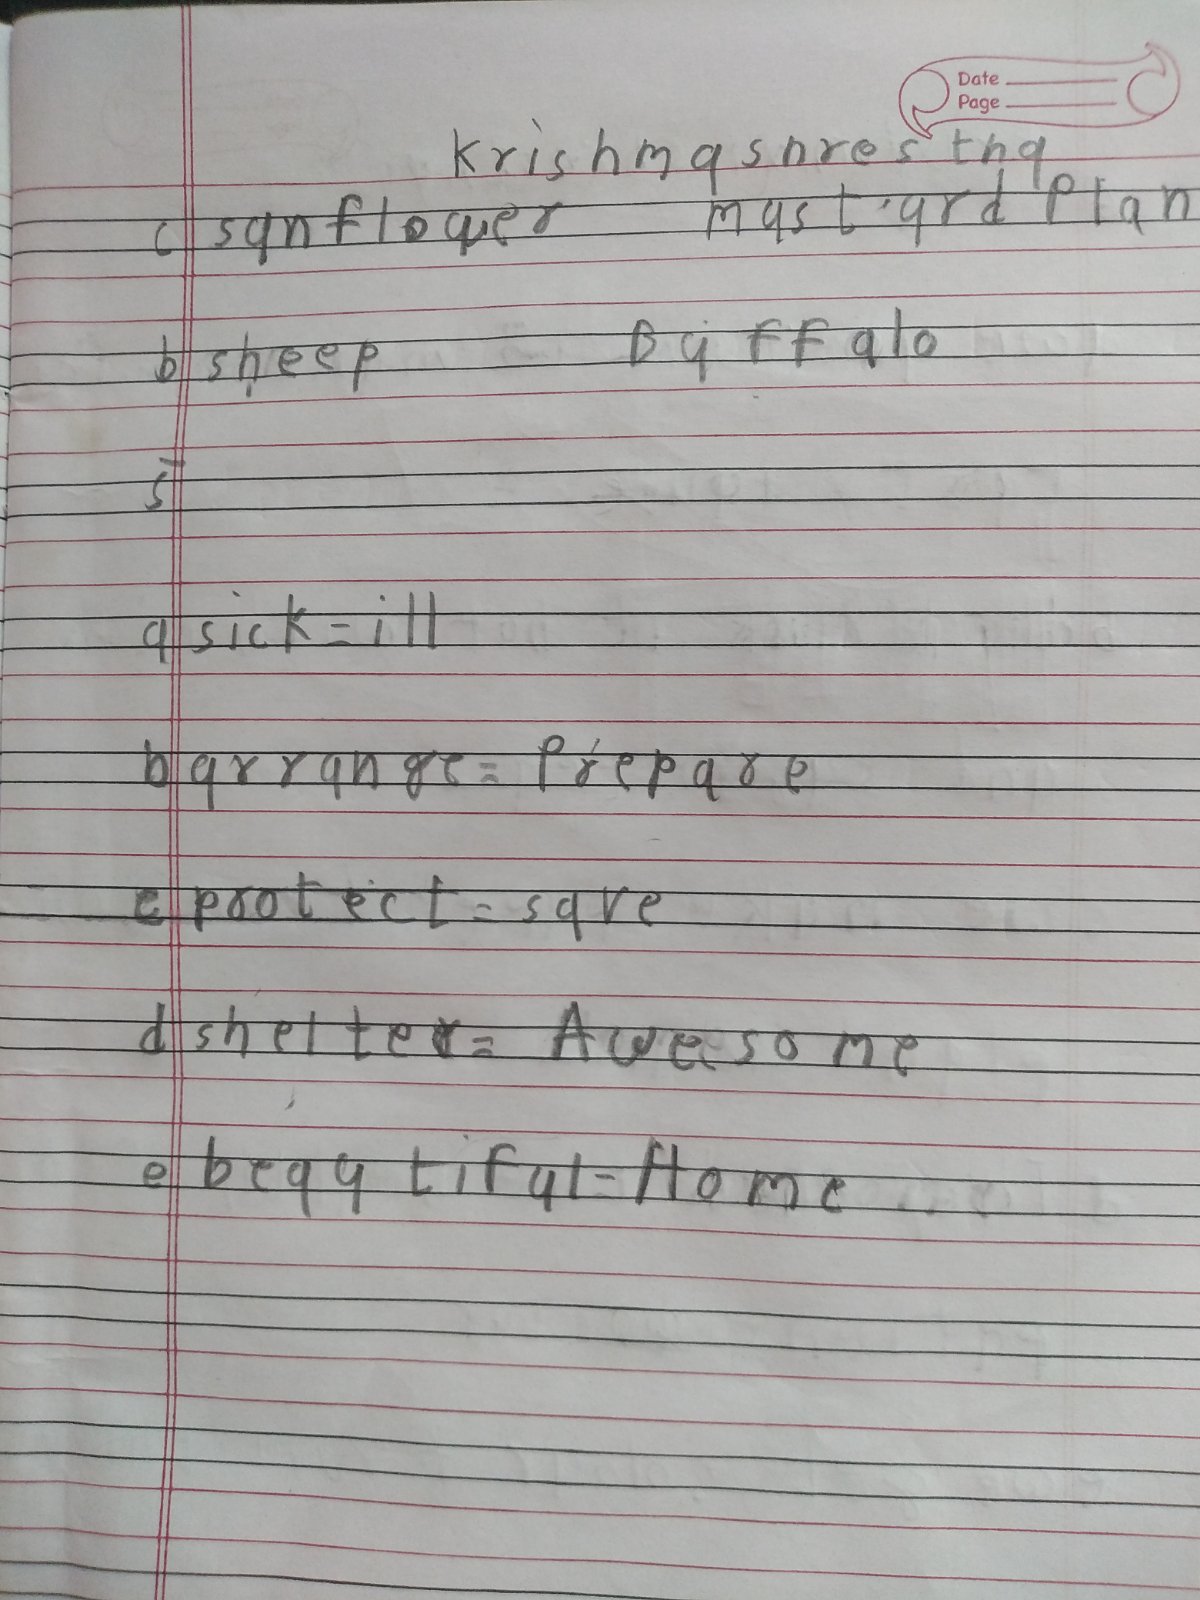 Date
Page
Krishma shrestha
c sunflower mustard Plan
b sheep Buffalo
5
a sick = ill
b arrange = Prepare
c protect = save
d shelter = Awesome
e beautiful - Home